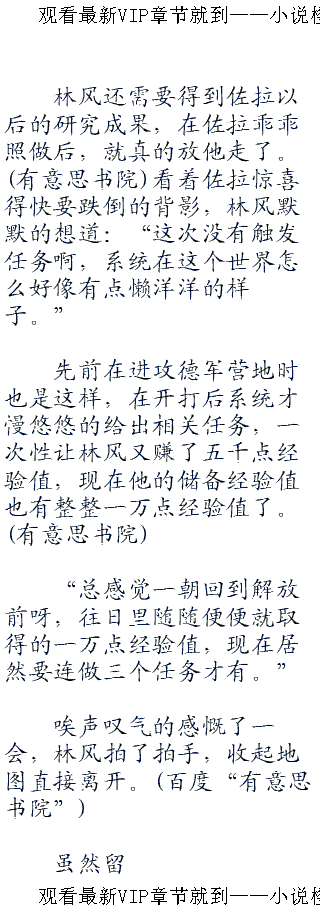 观看最新VIP章节就到——小说楼
林风还需要得到佐拉以
后的研究成果，在佐拉乖乖
照做后，就真的放他走了。
(有意思书院)看着佐拉惊喜
得快要跌倒的背影，林风默
默的想道：“这次没有触发
任务啊，系统在这个世界怎
么好像有点懒洋洋的样
子。”
先前在进攻德军营地时
也是这样，在开打后系统才
慢悠悠的给出相关任务，一
次性让林风又赚了五千点经
验值，现在他的储备经验值
也有整整一万点经验值了。
(有意思书院)
“总感觉一朝回到解放
前呀，往日里随随便便就取
得的一万点经验值，现在居
然要连做三个任务才有。”
唉声叹气的感慨了一
会，林风拍了拍手，收起地
图直接离开。(百度“有意思
书院”)
虽然留
观看最新VIP章节就到——小说楼